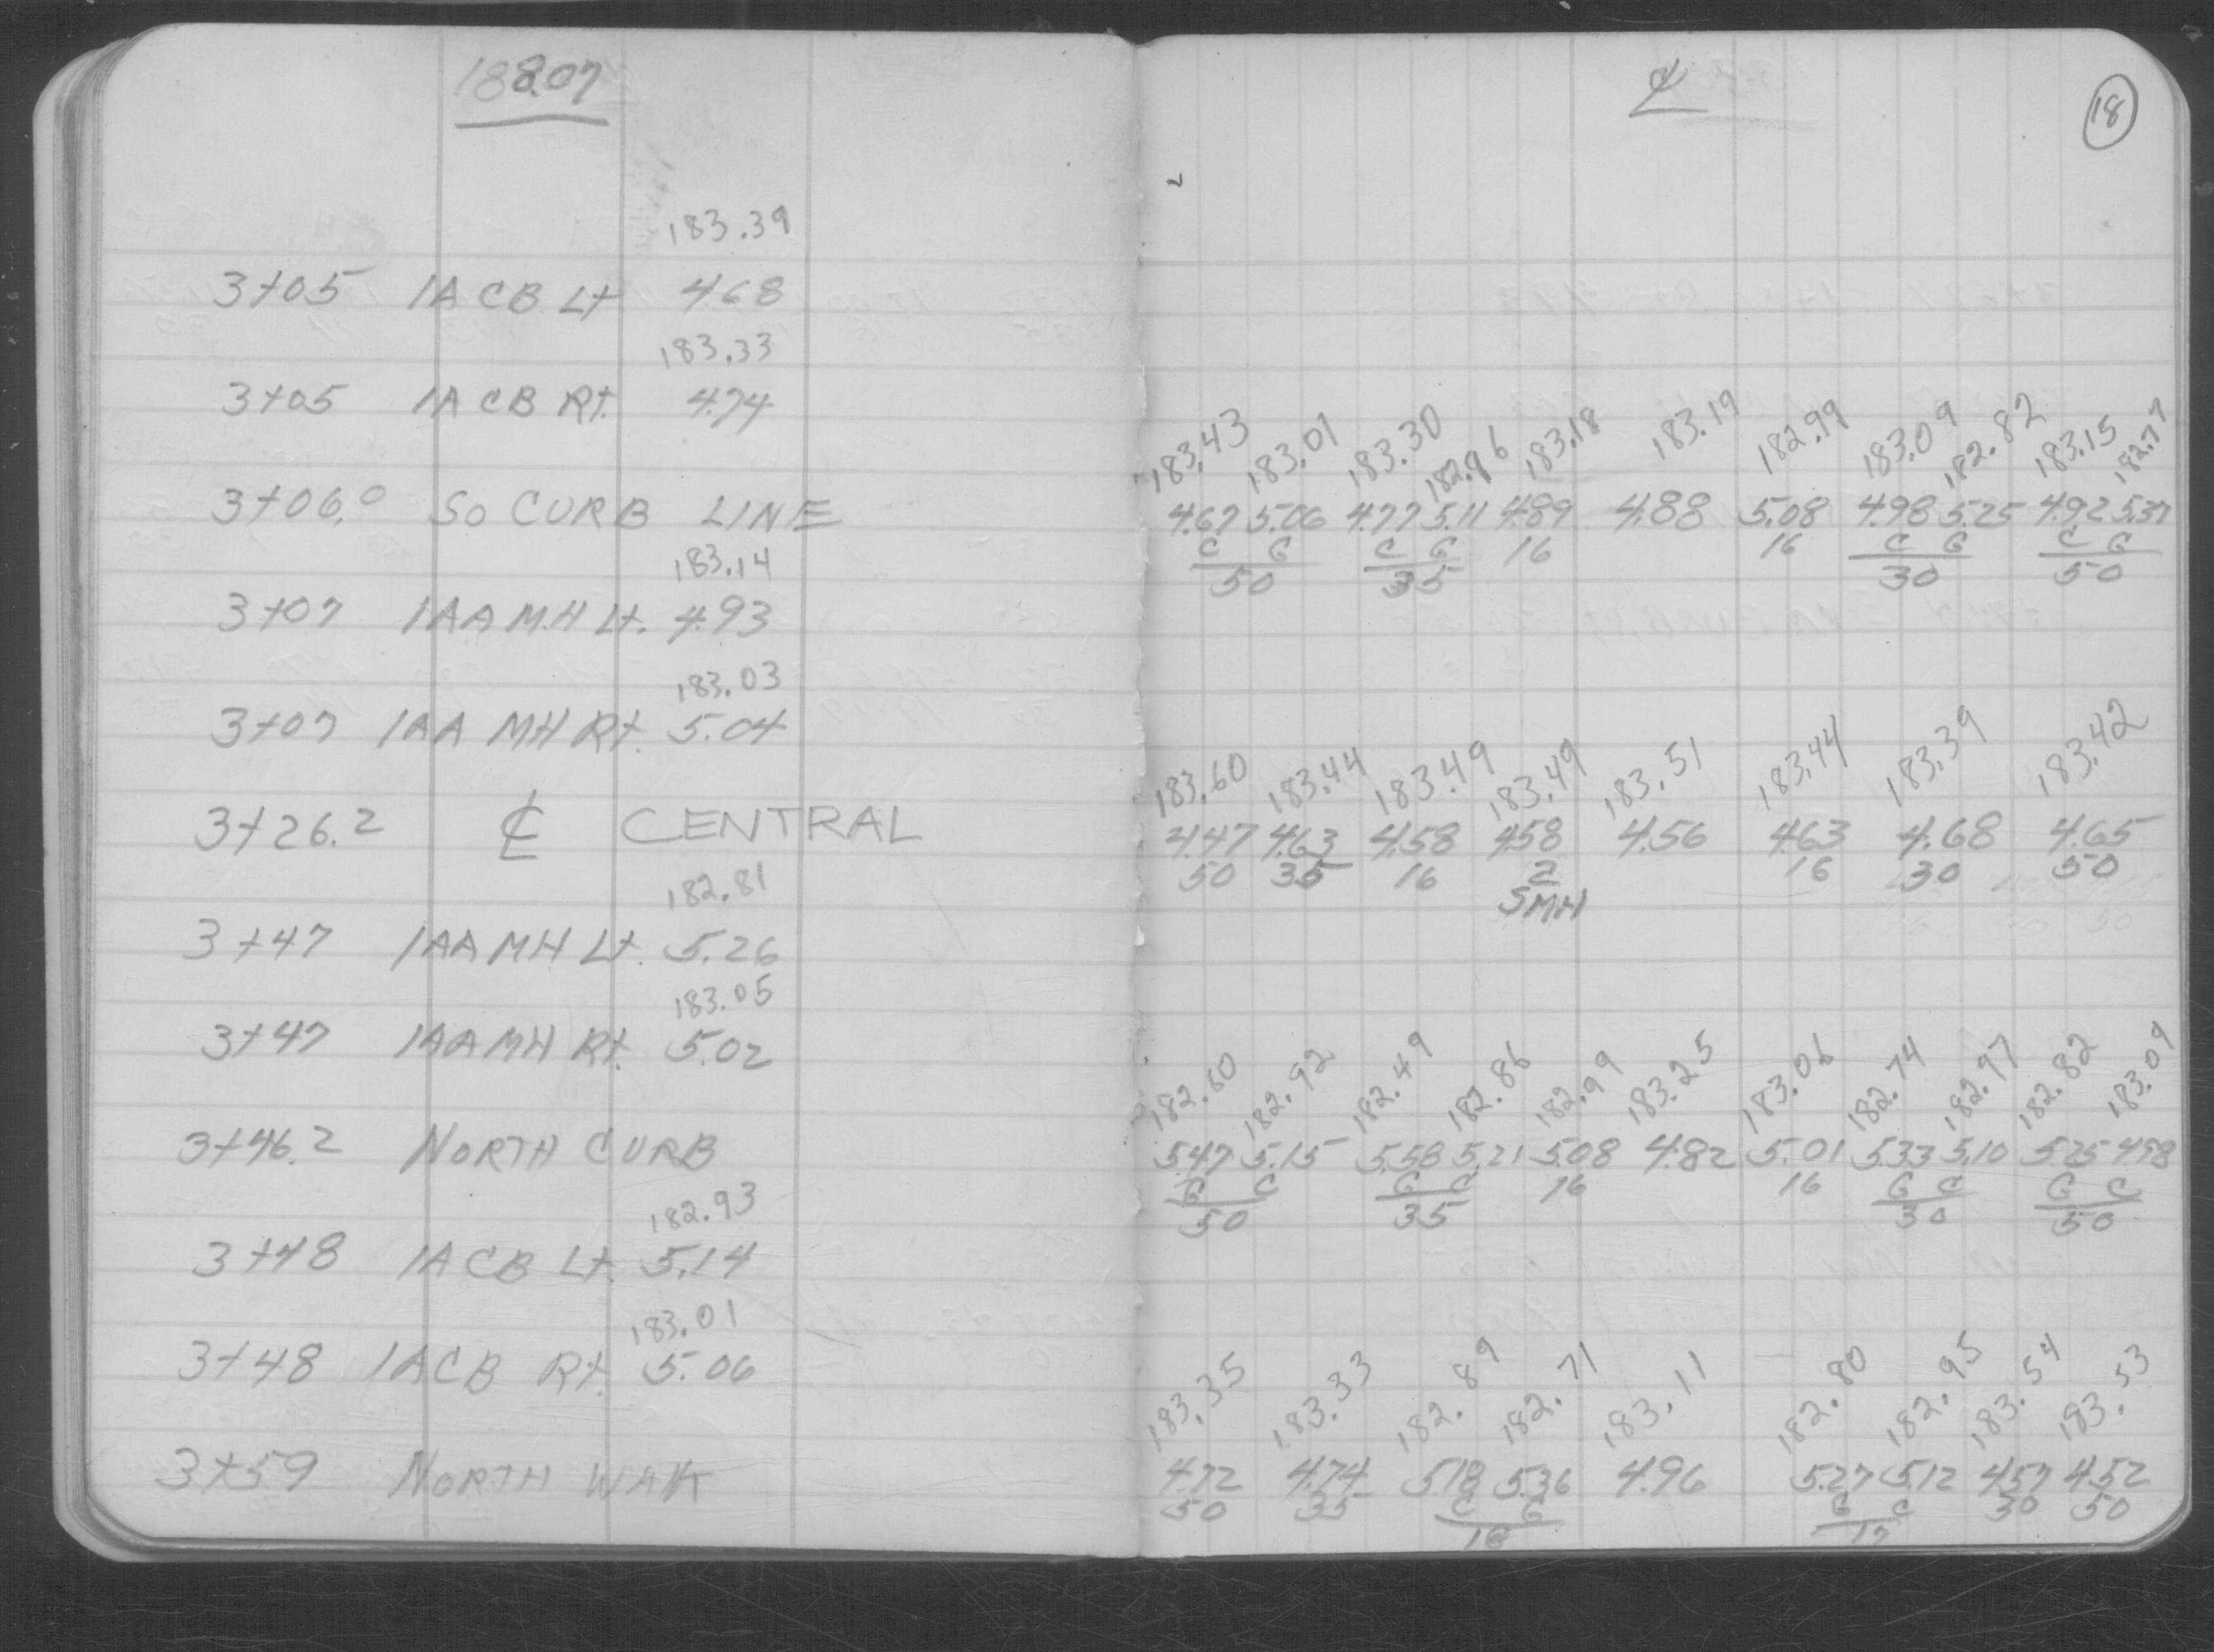 188.07
183.39
3+05 1A CB Lt 4.68
183.33
3+05 1A CB Rt. 4.74
3+06.0 SO CURB LINE
183.14
3+07 1AA M.H Lt. 4.93
183.03
3+07 1AA MH Rt. 5.04
3+26.2 ℄ CENTRAL
182.81
3+47 1AA MH Lt. 5.26
183.05
3+47 1AA MH Rt. 5.02
3+46.2 NORTH CURB
182.93
3+48 1A CB Lt. 5.14
183.01
3+48 1A CB Rt. 5.06
3+59 NORTH WALK
℄
18
183.43 183.01 183.30 182.96 183.18 183.19 182.99 183.09 182.82 183.15 182.77
4.67 5.06 4.77 5.11 4.89 4.88 5.08 4.98 5.25 4.92 5.37
C G C G 16 16 C G C G
50 35 30 50
183.60 183.44 183.49 183.49 183.51 183.44 183.39 183.42
4.47 4.63 4.58 4.58 4.56 4.63 4.68 4.65
50 35 16 2 16 30 50
SMH
182.60 182.92 182.49 182.86 182.99 183.25 183.06 182.74 182.97 182.82 183.09
5.47 5.15 5.58 5.21 5.08 4.82 5.01 5.33 5.10 5.25 4.98
G C G C 16 16 G C G C
50 35 30 50
183.35 183.33 182.89 182.71 183.11 182.80 182.95 183.54 183.53
4.72 4.74 5.18 5.36 4.96 5.27 5.12 4.57 4.52
50 35 C G G C 30 50
16